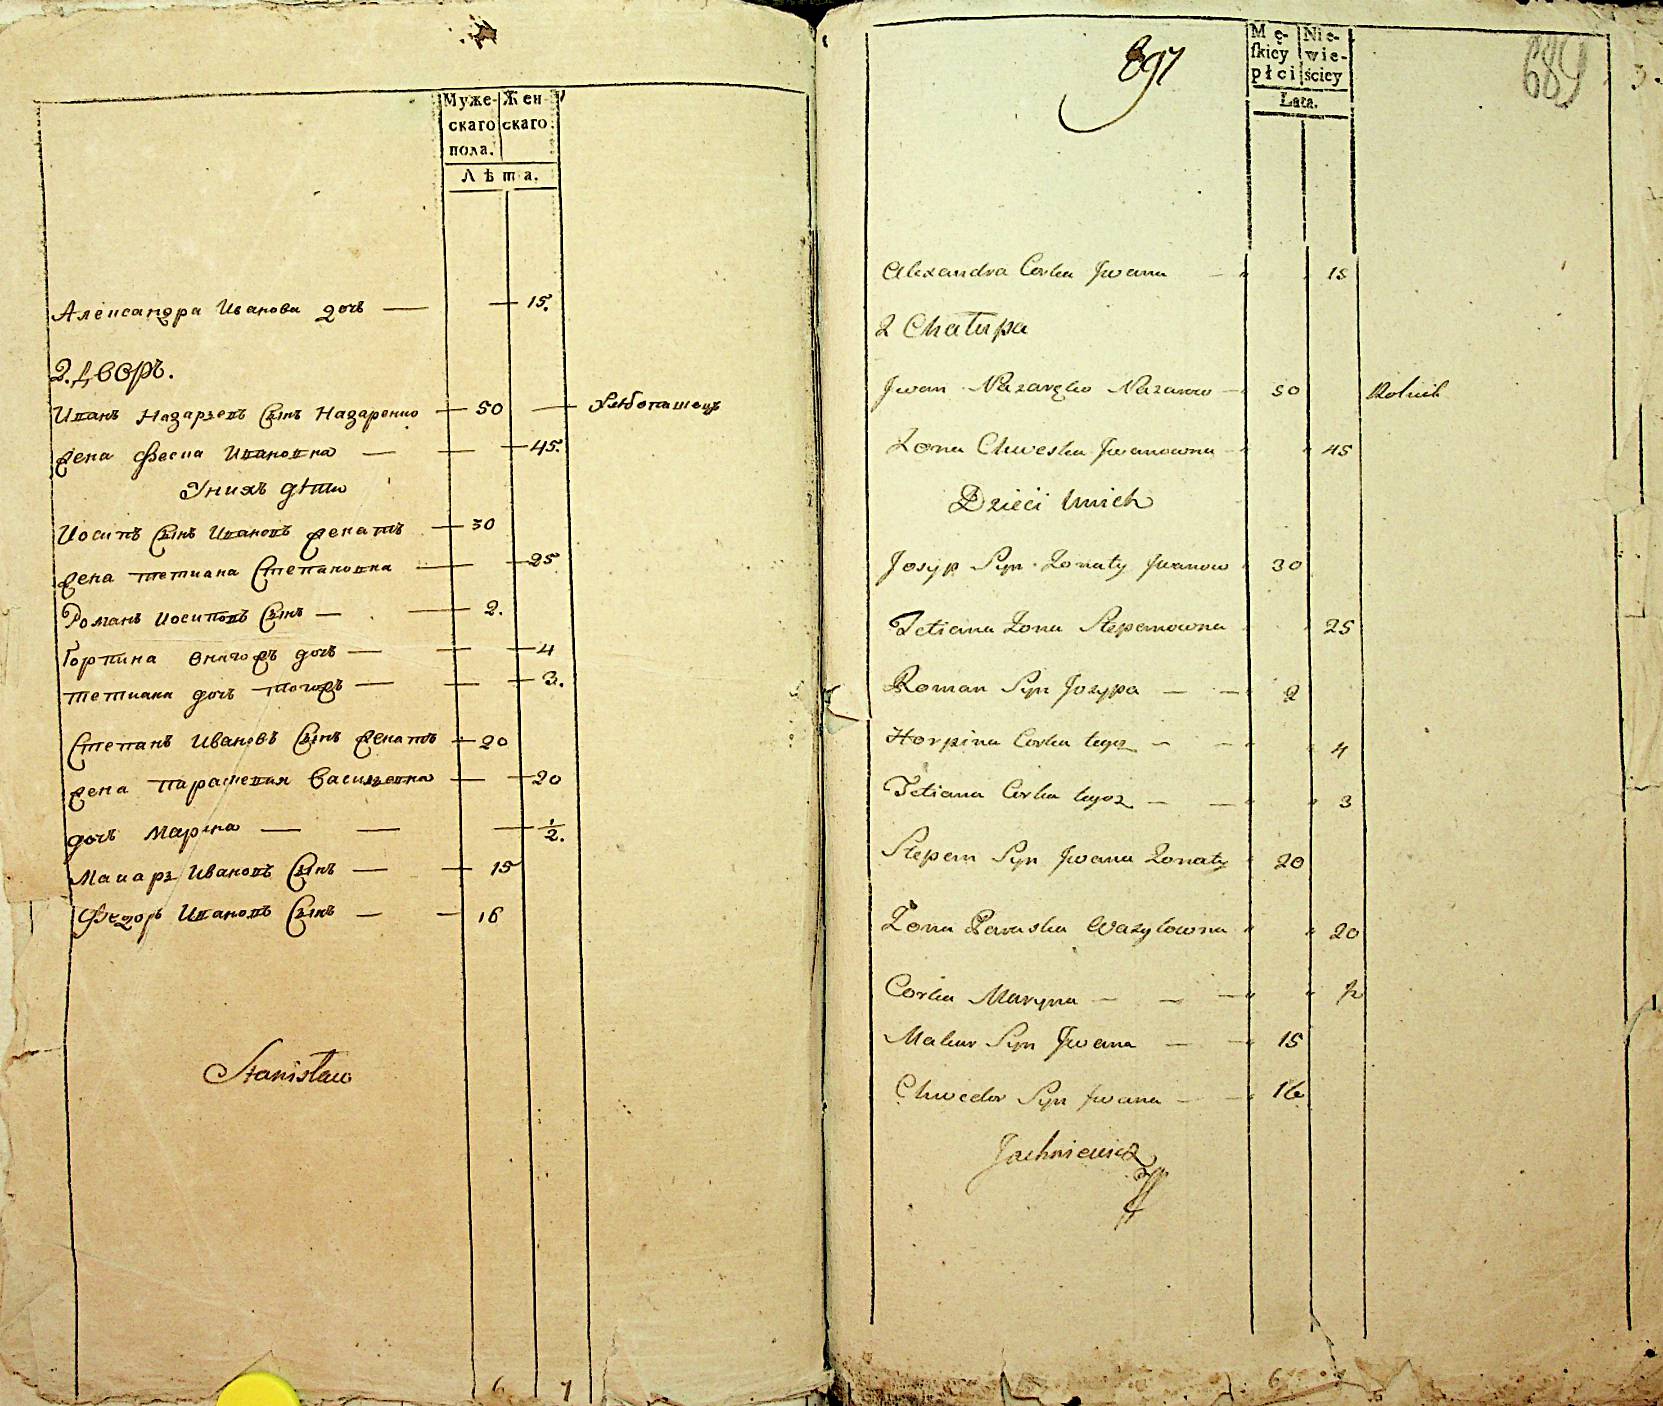 Муже- Жен-
скаго скаго
пола.
Лѣта.
Александра Иванова дочь — — 15.
2. Дворъ.
Иванъ Назарьевъ Сынъ Назаренко — 50 —
жена Феска Ивановна — — 45.
Унихъ дѣти
Иосипъ Сынъ Ивановъ женатъ — 30
жена тетиана Степановна — — 25
Романъ Иосиповъ Сынъ — — 2.
Горпина дочь — — — 4
тетиана дочь тогожъ — — — 3.
Степанъ Ивановъ Сынъ женатъ — 20
жена Параскевия Васильевна — — 20
дочь Марина — — — 1/2.
Макаръ Ивановъ Сынъ — — 15
Федоръ Ивановъ Сынъ — — 16
Stanisław
6 7
897
689
3.
Mę- Nie-
skiey wie-
płci ściey
Lata.
Alexandra Corka Jwana — " " 15
2 Chałupa
Jwan Nazaręko Nazarow — 50 Rolnik
Zona Chweska Jwanowna " " 45
Dzieci Unich
Josyp Syn Zonaty Jwanow " 30
Tetiana Zona Stepanowna " 25
Roman Syn Jozypa — — " 2
Horpina Corka tegoz — — " " 4
Tetiana Corka tegoz — — " " 3
Stepan Syn Jwana Zonaty " 20
Zona Paraska Wazylowna " " 20
Corka Maryna — — — " " ½
Makar Syn Jwana — — " 15
Chwedor Syn Jwana — — " 16
Jachniewicz
6 7